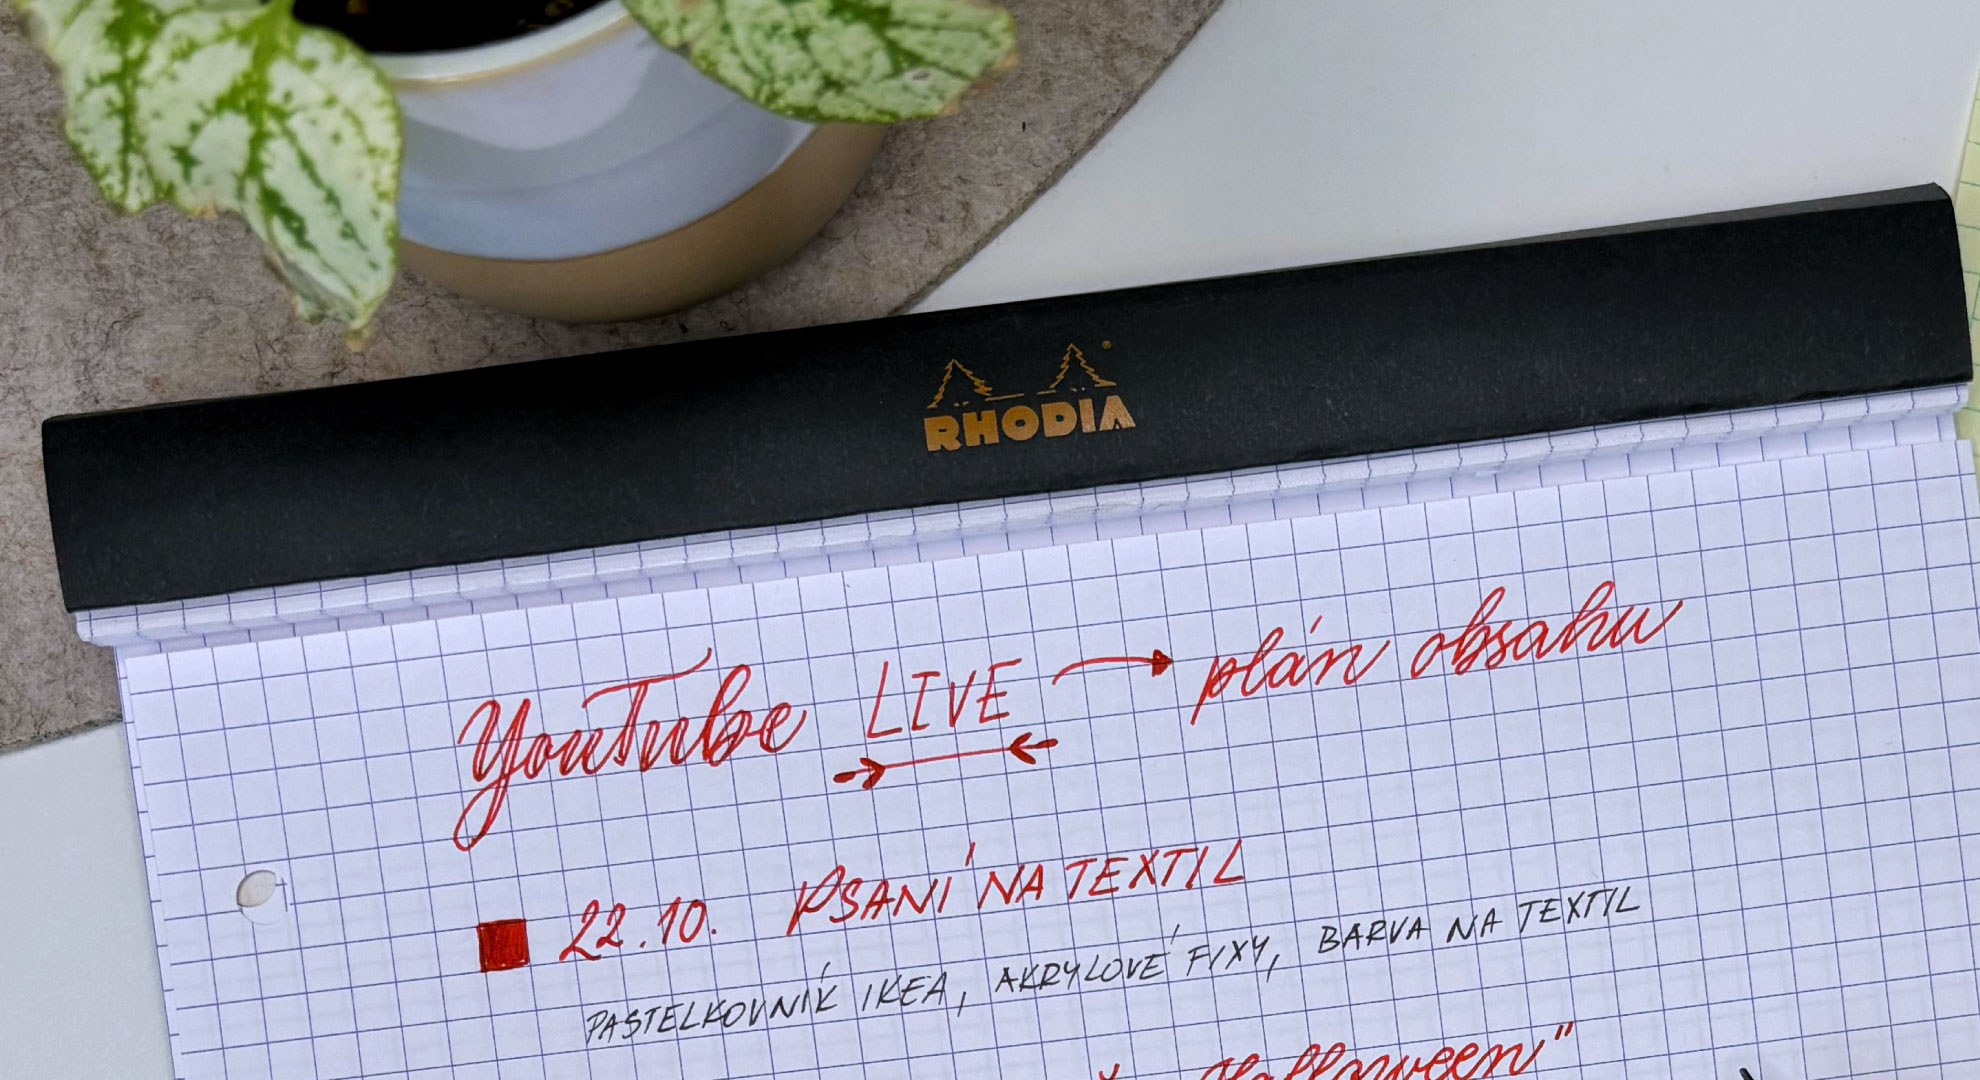 RHODIA
YouTube LIVE → plán obsahu
22.10. PSANÍ NA TEXTIL
PASTELKOVNÍK IKEA, AKRYLOVÉ FIXY, BARVA NA TEXTIL
Halloween"